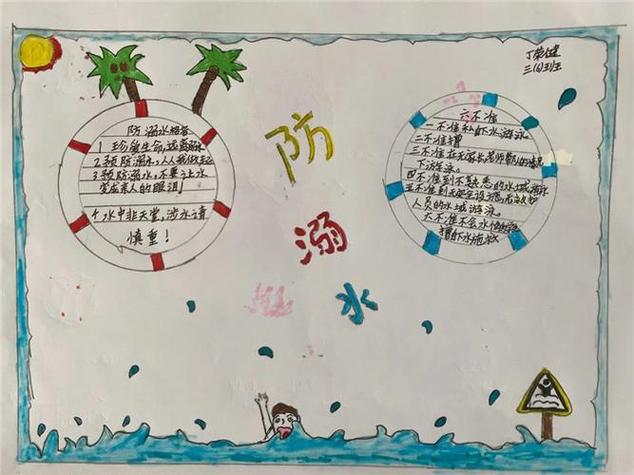 丁荣健
三(6)班
防
溺
水
防溺水标语
1 珍爱生命,远离溺水
2 预防溺水,人人我做起
3 预防溺水,不要让水
变成亲人的眼泪
4 水中非天堂,涉水请
慎重!
六不准
一不准私下水游泳
二不准擅
三不准在无家长或师带的情况
下游泳。
四不准到不熟悉的水域游泳
五不准到无安全设施,无救护
人员的水域游泳。
六不准不会水性的
擅下水施救